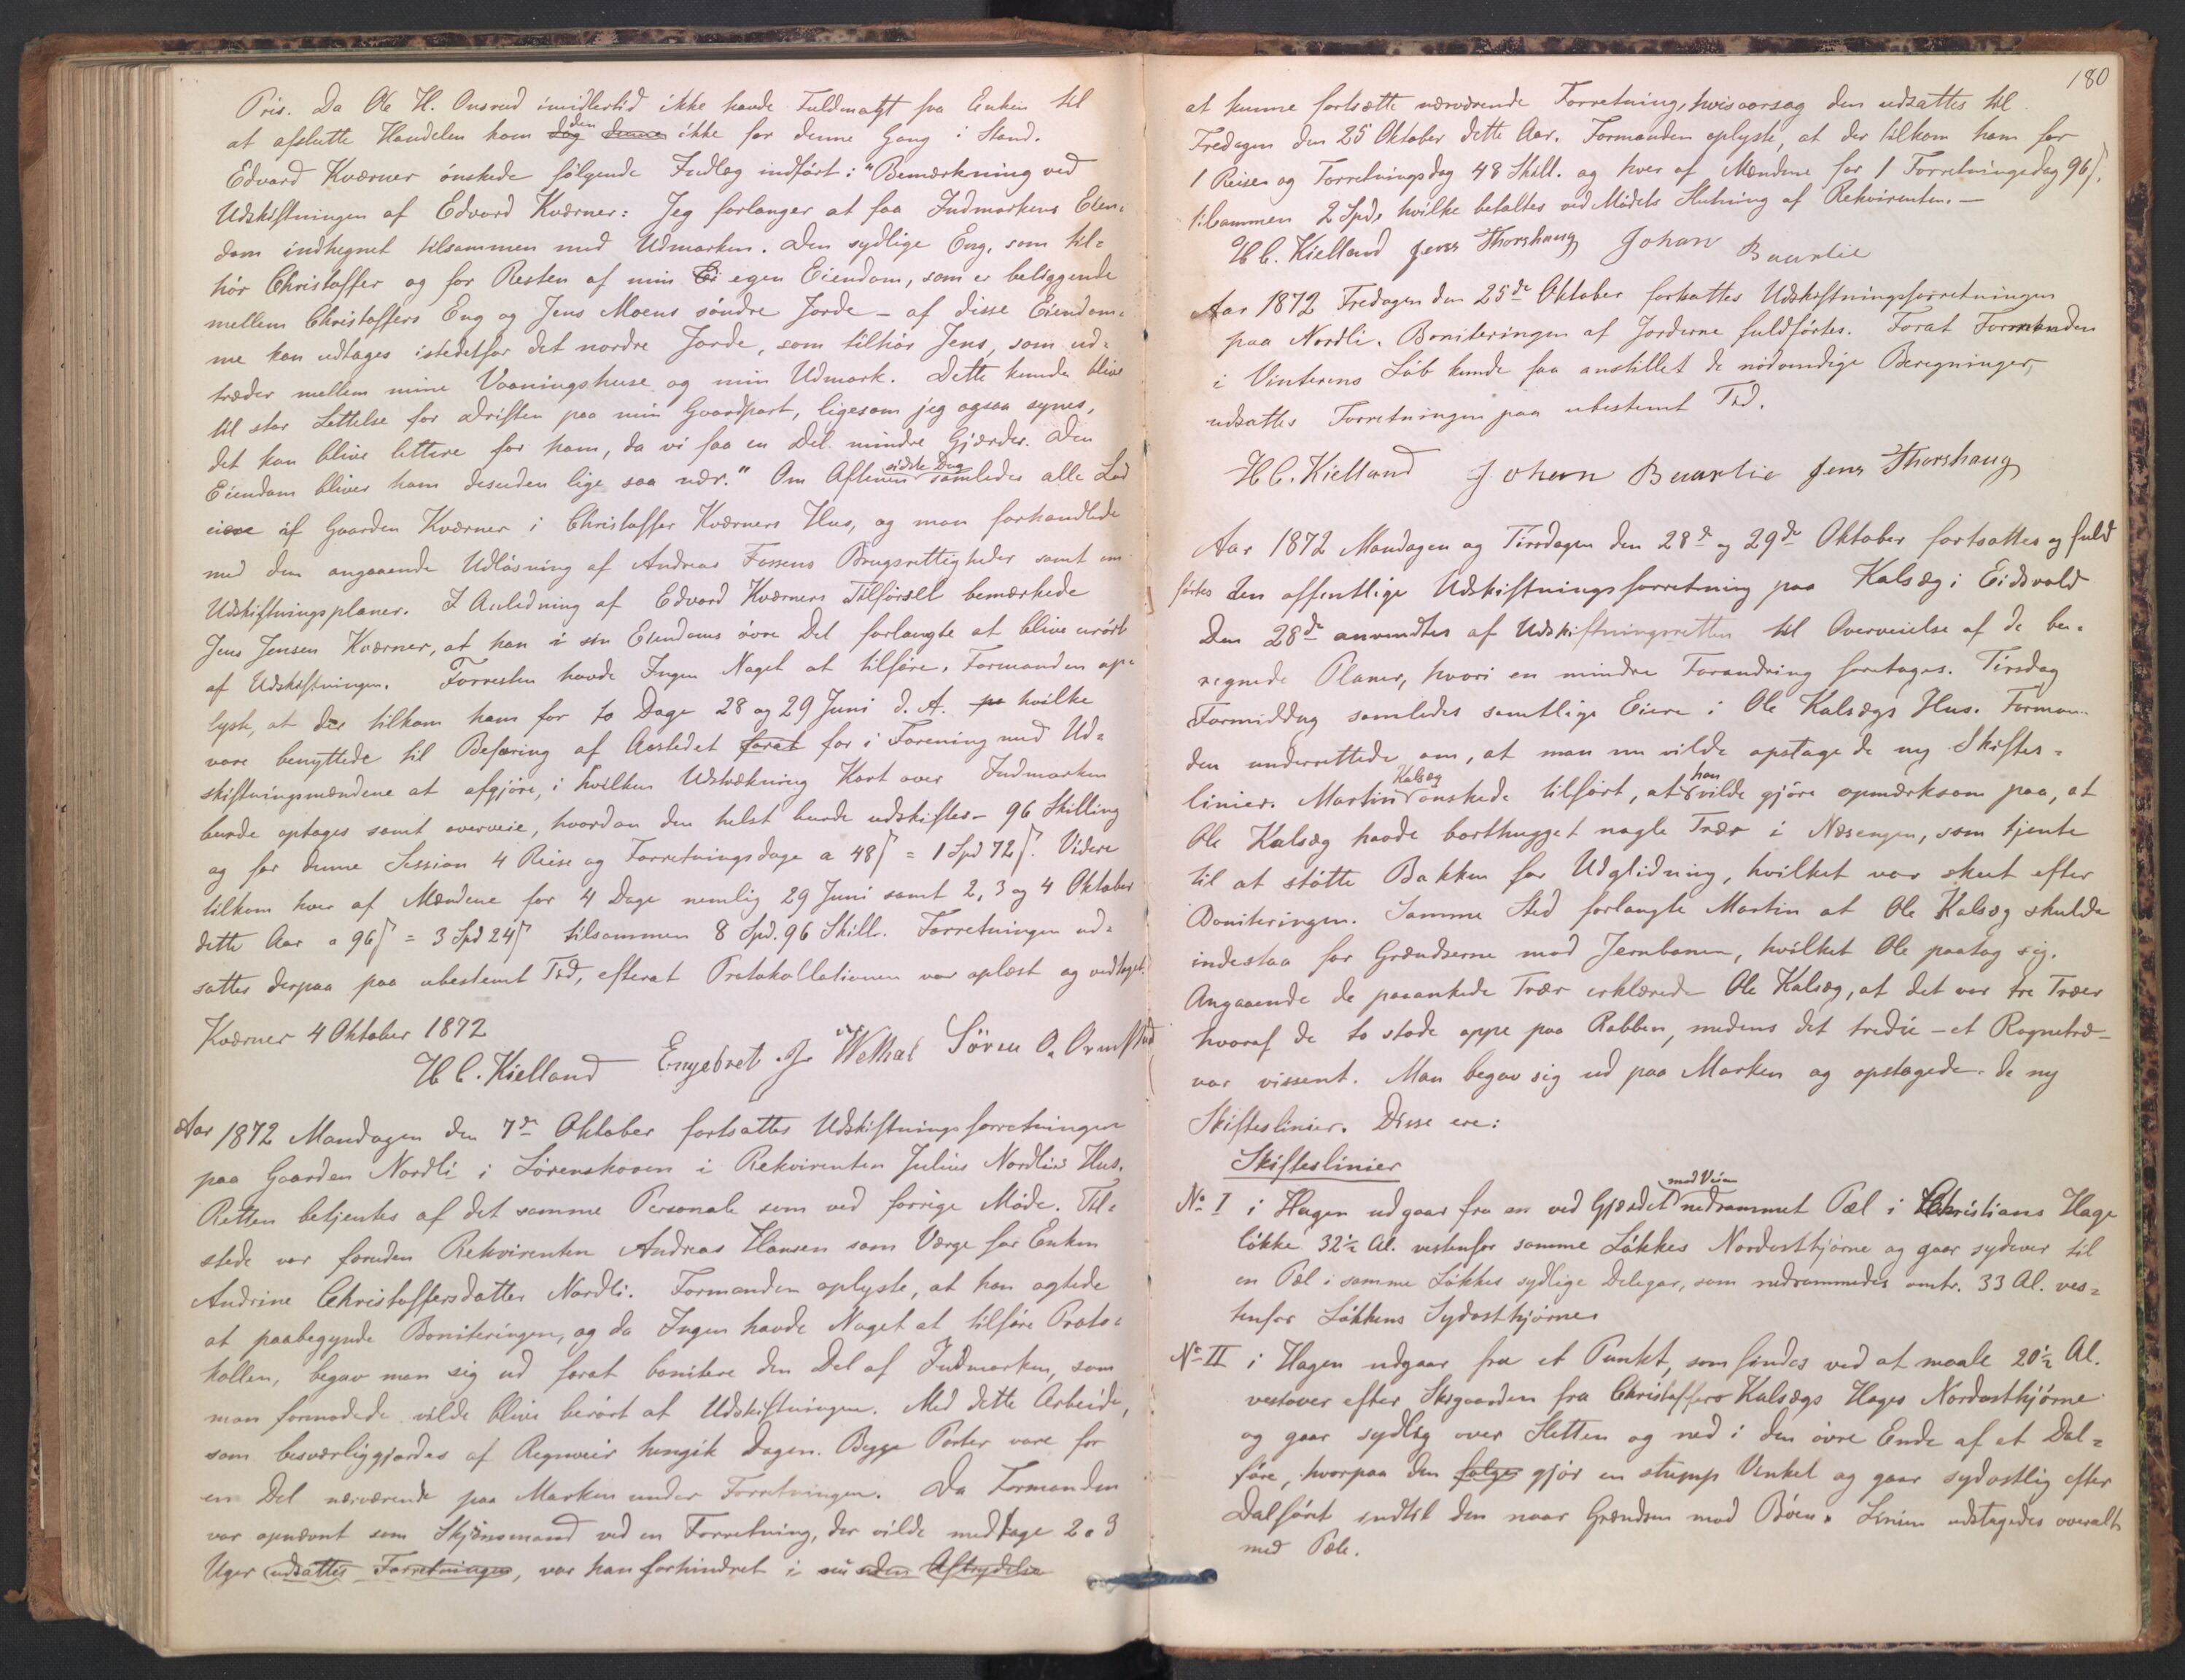 Pris. Da Ole H. Onsrud imidlertid ikke havde Fuldmagt fra Enken til
at afslutte Handelen kom den ikke for denne Gang i Stand.
Edvard Kværner ønskede følgende Indlæg indført: "Bemærkning ved
Udskiftningen af Edvard Kværner: Jeg forlanger at faa Indmarkens Eien-
dom indhegnet tilsammen med Udmarken. Den sydlige Eng, som til-
hør Christoffer og for Resten af min egen Eiendom, som er beliggende
mellem Christoffers Eng og Jens Moens søndre Jorde – af disse Eiendom-
me kan udtages istedetfor det nordre Jorde, som tilhør Jens, som ud-
træder mellem mine Vaaningshuse og min Udmark. Dette kunde blive
til stor Lettelse for Driften paa min Gaardpart, ligesom jeg ogsaa synes,
det kan blive lettere for ham, da vi faa en Del mindre Gjærder. Den
Eiendom bliver ham desuden lige saa nær." Om Aftenen sidste Dag samledes alle Lod
eiere af Gaarden Kværner i Christoffer Kværners Hus, og man forhandlede
med dem angaaende Udløsning af Andreas Fossens Brugsrettigheder samt om
Udskiftningsplaner. I Anledning af Edvard Kværners Tilførsel bemærkede
Jens Jensen Kværner, at han i sin Eiendoms øvre Del forlangte at blive urørt
af Udskiftningen. Forresten havde Ingen Noget at tilføre. Formanden op-
lyste, at der tilkom ham for to Dage 28 og 29 Juni d. A. hvilke
vare benyttede til Befaring af Aastedet for i Forening med Ud-
skiftningsmændene at afgjøre, i hvilken Udstrækning Kart over Indmarken
burde optages samt overveie, hvordan den helst burde udskiftes – 96 Skilling
og for denne Session 4 Reise og Forretningsdage a 48 ß = 1 Spd 72 ß. Videre
tilkom hver af Mændene for 4 Dage nemlig 29 Juni samt 2, 3 og 4 Oktober
dette Aar a 96 ß = 3 Spd 24 ß tilsammen 8 Spd. 96 Skill. Forretningen ud-
sattes derpaa paa ubestemt Tid, efterat Protokollationen var oplæst og vedtaget.
Kværner 4 Oktober 1872
H C. Kielland Engebret J Wethal Sören O. Ormstad
Aar 1872 Mandagen den 7de Oktober fortsattes Udskiftningsforretningen
paa Gaarden Nordli i Sörenskoven i Rekvirenten Julius Nordlis Hus.
Retten betjentes af det samme Personale som ved forrige Møde. Til-
stede var foruden Rekvirenten Andreas Hansen som Værge for Enken
Andrine Christoffersdatter Nordli. Formanden oplyste, at han agtede
at paabegynde Boniteringen, og da Ingen havde Noget at tilføre Proto-
kollen, begav man sig ud forat bonitere den Del af Indmarken, som
man formodede vilde blive berørt af Udskiftningen. Med dette Arbeide,
som besværliggjordes af Regnveir hengik Dagen. Begge Parter vare for
en Del nærværende paa Marken under Forretningen. Da Formanden
var opnævnt som Skjønsmand ved en Forretning, der vilde medtage 2 a 3
Uger udsattes Forretningen, var han forhindret i nu uden Afbrydelse
180
at kunne fortsætte nærværende Forretning, hvisaarsag den udsattes til
Fredagen den 25 Oktober dette Aar. Formanden oplyste, at der tilkom ham for
1 Reise og Forretningsdag 48 Skill. og hver af Mændene for 1 Forretningsdag 96 ß,
tilsammen 2 Spd, hvilke betaltes ved Mødets Slutning af Rekvirenten. –
H C. Kielland Jens Thorshaug Johan Buarlie
Aar 1872 Fredagen den 25de Oktober fortsattes Udskiftningsforretningen
paa Nordli. Boniteringen af Jorderne fuldførtes. Forat Formanden
i Vinterens Løb kunde faa anstillet de nødvendige Beregninger,
udsattes Forretningen paa ubestemt Tid.
H C. Kielland Johan Buarlie Jens Thorshaug
Aar 1872 Mandagen og Tirsdagen den 28de og 29de Oktober fortsattes og fuld
førtes den offentlige Udskiftningsforretning paa Kalsæg i Eidsvold
Den 28de anvendtes af Udskiftningsretten til Overveielse af de be-
regnede Planer, hvori en mindre Forandring foretages. Tirsdag
Formiddag samledes samtlige Eiere i Ole Kalsægs Hus. Forman-
den underrettede om, at man nu vilde opstage de ny Skiftes-
linier. Martin Kalsæg ønskede tilført, at han vilde gjøre opmærksom paa, at
Ole Kalsæg havde borthugget nogle Trær i Næsengen, som tjente
til at støtte Bakken for Udglidning, hvilket var skeet efter
Boniteringen. Samme Sted forlangte Martin at Ole Kalsæg skulde
indestaa for Grændserne mod Jernbanen, hvilket Ole paatog sig.
Angaaende de paaankede Trær erklærede Ole Kalsæg, at det var tre Træer
hvoraf de to stode oppe paa Rabben, medens det tredie – et Rognetræ –
var vissent. Man begav sig ud paa Marken og opstagede de ny
Skifteslinier. Disse ere:
Skifteslinier
No I i Hagen udgaar fra en ved Gjærdet mod Veien nedrammet Pæl i Christians Hage
løkke 32½ Al. vestenfor samme Løkkes Nordosthjørne og gaar sydover til
en Pæl i samme Løkkes sydlige Delegar, som nedrammedes omtr. 33 Al. ves-
tenfor Løkkens Sydosthjørne
No II i Hagen udgaar fra et Punkt, som findes ved at maale 20½ Al.
vestover efter Skigaarden fra Christoffer Kalsægs Hages Nordosthjørne
og gaar sydlig over Sletten og ned i den øvre Ende af et Dal-
føre, hvorpaa den følger gjør en stump Vinkel og gaar sydostlig efter
Dalføret indtil den naar Grændsen mod Bøen. Linien udstagedes overalt
med Pæle.